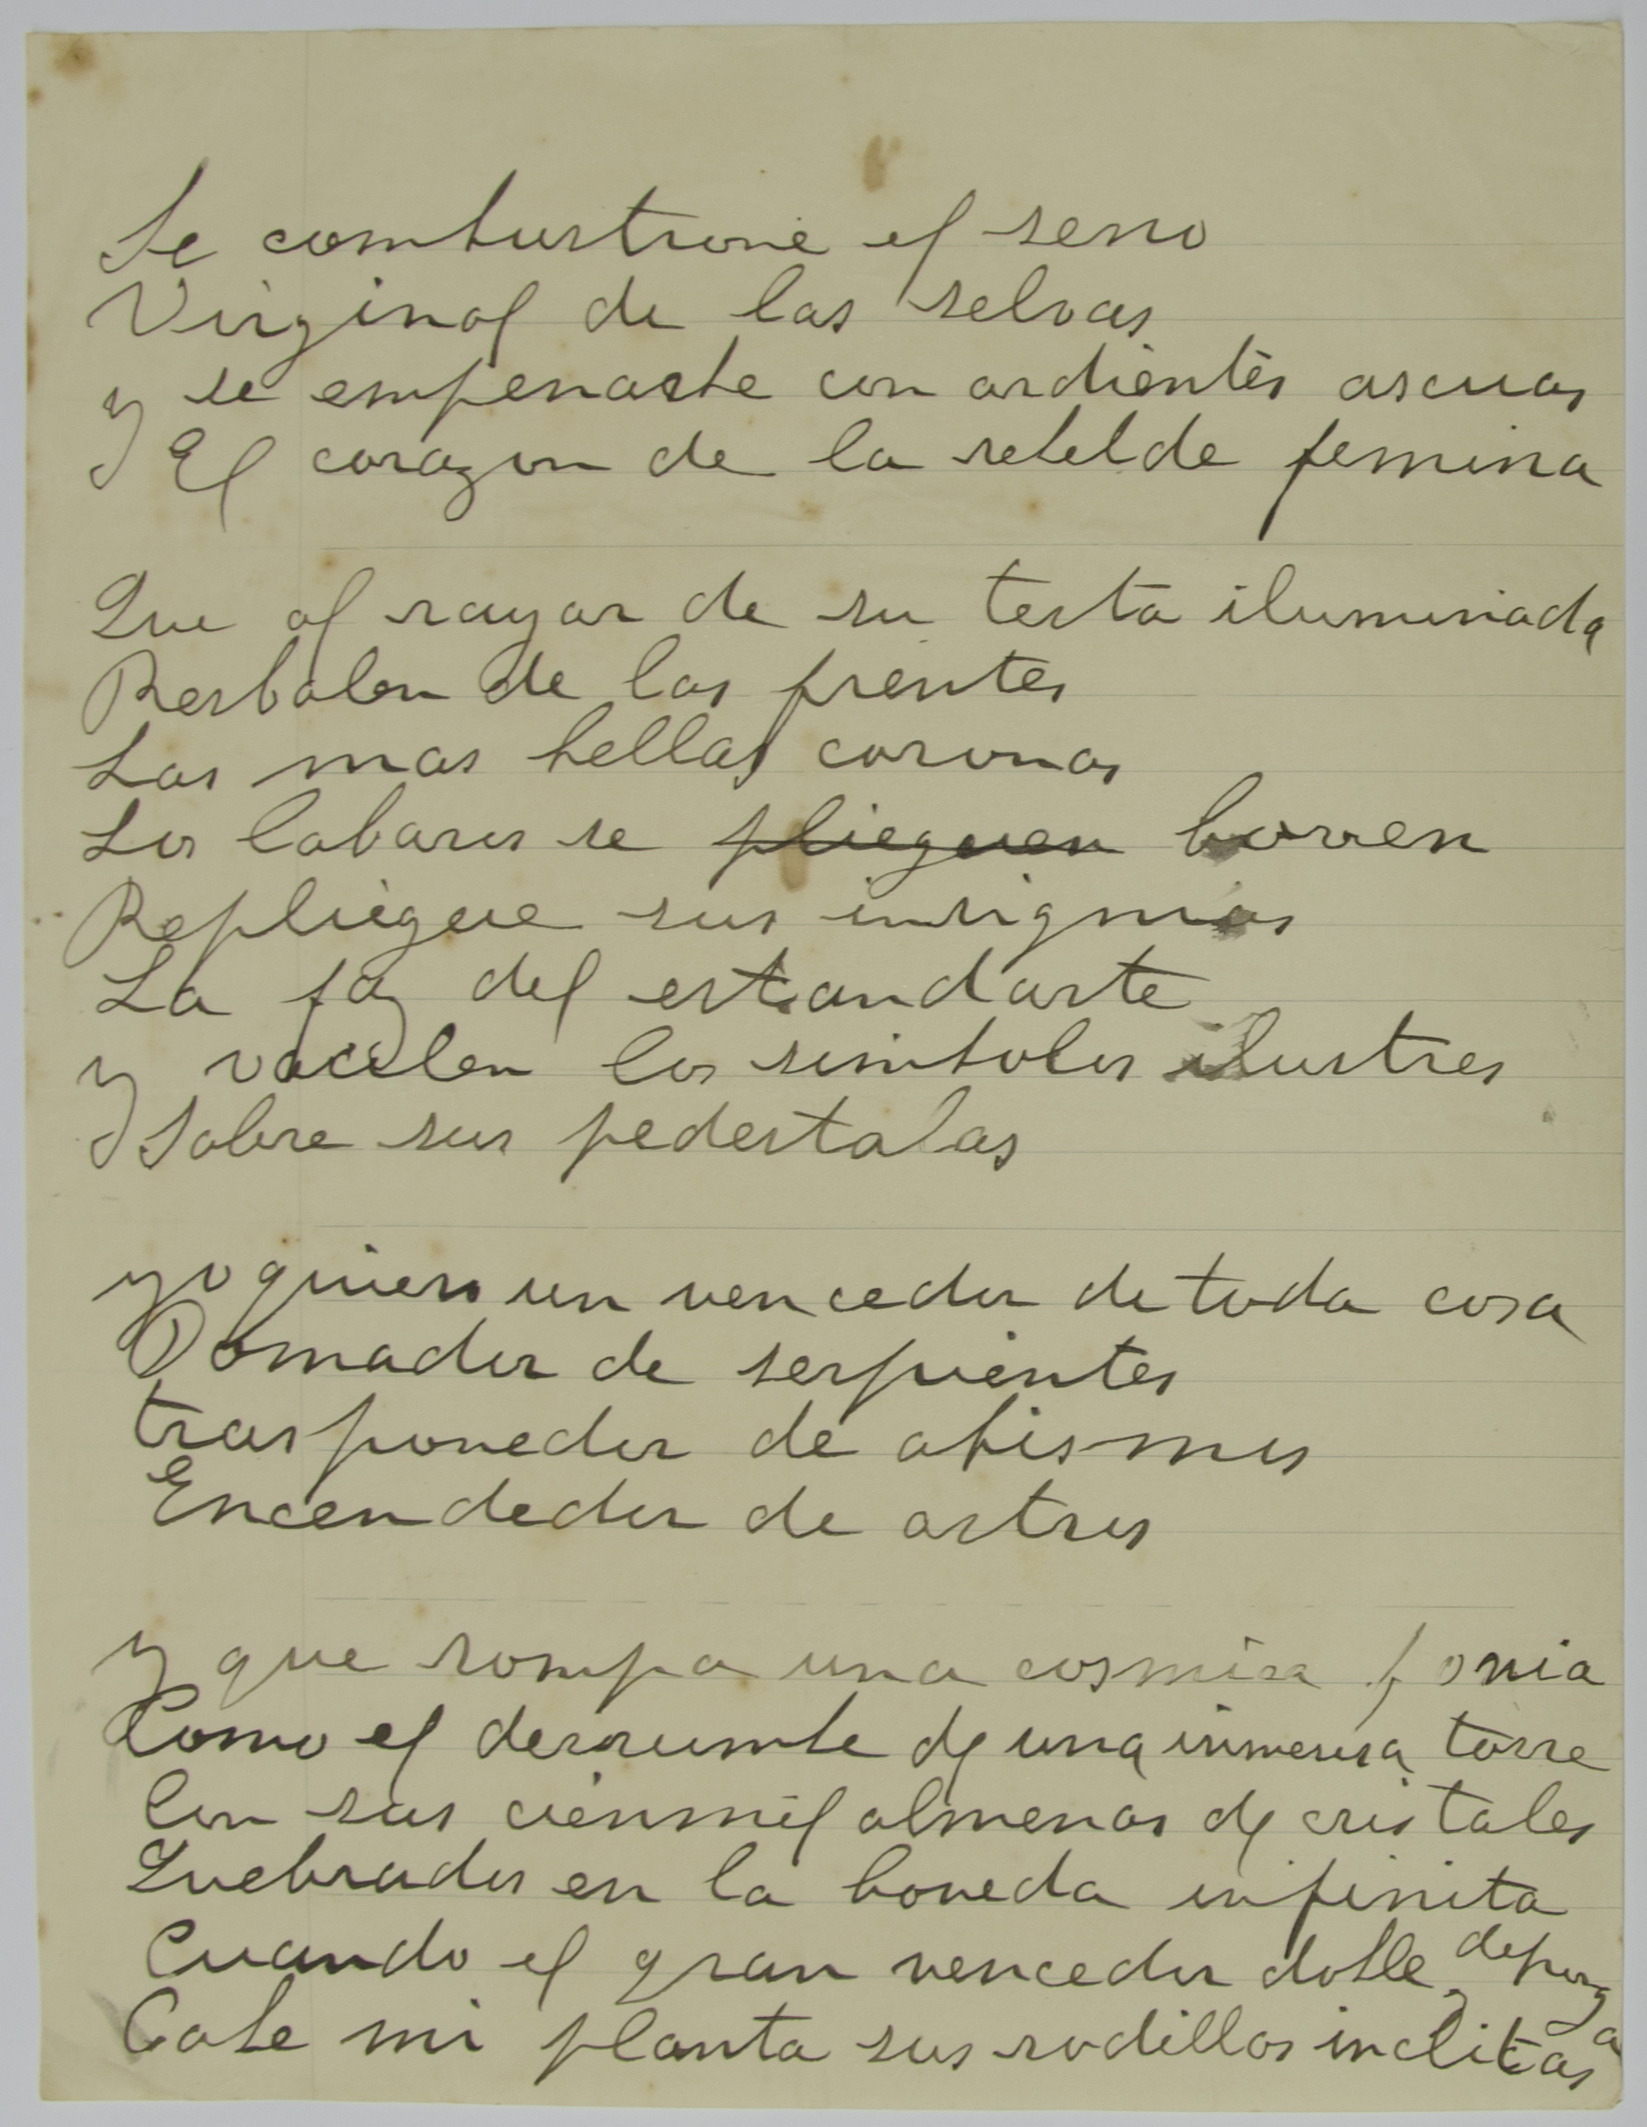 Se combustione el seno
Virginal de las selvas
y se empenache con ardientes ascuas
El corazon de la rebelde femina
Que al rayar de su testa iluminada
Resbalen de las frentes
Las mas bellas coronas
Los labaros se plieguen borren
Repliegue sus insignias
La faz del estandarte
y vacilen los simbolos ilustres
Sobre sus pedestalas
yo quiero un vencedor de toda cosa
Domador de serpientes
trasponedor de abismos
Encendedor de astros
y que rompa una cosmica fonia
Como el derrumbe de una inmensa torre
Con sus cienmil almenas de cristales
Quebrados en la boveda infinita
Cuando el gran vencedor doble y deponga
Cabe mi planta sus rodillas inclitas